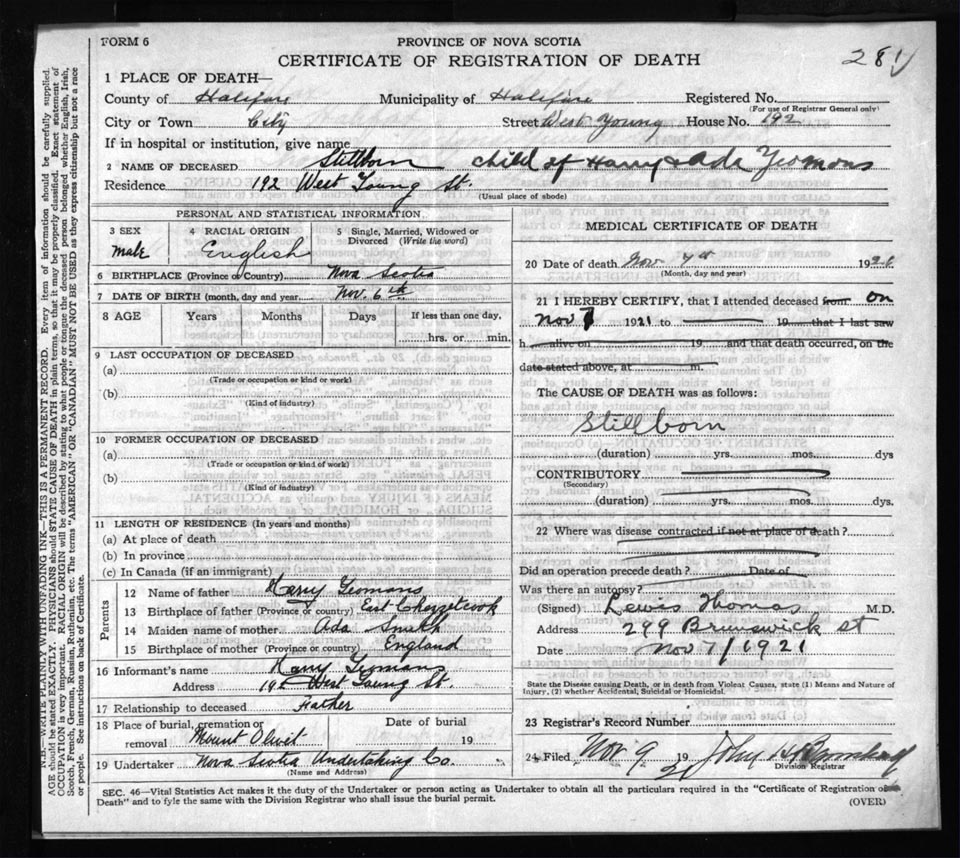 FORM 6
PROVINCE OF NOVA SCOTIA
CERTIFICATE OF REGISTRATION OF DEATH
281
1 PLACE OF DEATH—
County of Halifax Municipality of Halifax Registered No.
(For use of Registrar General only)
City or Town City Street West Young House No. 192
If in hospital or institution, give name
2 NAME OF DECEASED Stillborn child of Harry & Ada Yeomans
Residence 192 West Young St.
(Usual place of abode)
PERSONAL AND STATISTICAL INFORMATION
3 SEX 4 RACIAL ORIGIN 5 Single, Married, Widowed or
Divorced (Write the word)
Male English
6 BIRTHPLACE (Province or Country) Nova Scotia
7 DATE OF BIRTH (month, day and year) Nov. 6th
8 AGE Years Months Days If less than one day,
hrs. or min.
9 LAST OCCUPATION OF DECEASED
(a)
(Trade or occupation or kind or work)
(b)
(Kind of industry)
10 FORMER OCCUPATION OF DECEASED
(a)
(Trade or occupation or kind or work)
(b)
(Kind of industry)
11 LENGTH OF RESIDENCE (In years and months)
(a) At place of death
(b) In province
(c) In Canada (if an immigrant)
Parents
12 Name of father Harry Yeomans
13 Birthplace of father (Province or country) East Chezzetcook
14 Maiden name of mother Ada Smith
15 Birthplace of mother (Province or country) England
16 Informant's name Harry Yeomans
Address 192 West Young St.
17 Relationship to deceased Father
18 Place of burial, cremation or Date of burial
removal Mount Olivet 19
19 Undertaker Nova Scotia Undertaking Co.
(Name and Address)
MEDICAL CERTIFICATE OF DEATH
20 Date of death Nov 7th 1921
(Month, day and year)
21 I HEREBY CERTIFY, that I attended deceased from on
Nov 7 1921 to 19 that I last saw
h alive on 19 and that death occurred, on the
date stated above, at m.
The CAUSE OF DEATH was as follows:
Stillborn
(duration) yrs. mos. dys
CONTRIBUTORY
(Secondary)
(duration) yrs. mos. dys.
22 Where was disease contracted if not at place of death?
Did an operation precede death? Date of
Was there an autopsy?
(Signed) Lewis Thomas M.D.
Address 299 Brunswick st
Date Nov 7/1921
State the Disease causing Death, or in death from Violent Causes, state (1) Means and Nature of
Injury, (2) whether Accidental, Suicidal or Homicidal.
23 Registrar's Record Number
24 Filed Nov 9 19 21 John H
Division Registrar
SEC. 46—Vital Statistics Act makes it the duty of the Undertaker or person acting as Undertaker to obtain all the particulars required in the "Certificate of Registration of
Death" and to fyle the same with the Division Registrar who shall issue the burial permit.
(OVER)
N.B.—WRITE PLAINLY WITH UNFADING INK—THIS IS A PERMANENT RECORD. Every item of information should be carefully supplied.
AGE should be stated EXACTLY. PHYSICIANS should STATE CAUSE OF DEATH in plain terms, so that it may be properly classified. Exact statement of
OCCUPATION is very important. RACIAL ORIGIN will be described by stating to what people or tongue the deceased person belonged whether English, Irish,
Scotch, French, German, Russian, Ruthenian, etc. The terms "AMERICAN" OR "CANADIAN" MUST NOT BE USED as they express citizenship but not a race
or people. See instructions on back of Certificate.